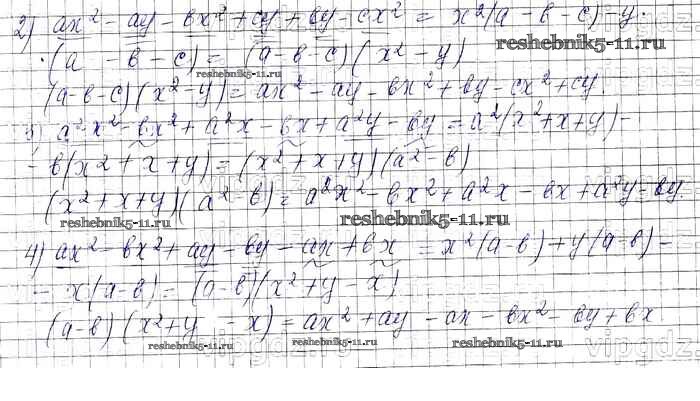 2) ax² - ay - bx² + cy + by - cx² = x²(a - b - c) - y·
·(a - b - c) = (a - b - c)(x² - y)
reshebnik5-11.ru
reshebnik5-11.ru
(a-b-c)(x²-y) = ax² - ay - bx² + by - cx² + cy.
3) a²x² - bx² + a²x - bx + a²y - by = a²(x² + x + y) -
- b(x² + x + y) = (x² + x + y)(a² - b)
(x² + x + y)(a² - b) = a²x² - bx² + a²x - bx + a²y - by.
reshebnik5-11.ru
reshebnik5-11.ru
4) ax² - bx² + ay - by - ax + bx = x²(a-b) + y(a-b) -
- x(a-b) = (a-b)(x² + y - x)
(a-b)(x² + y - x) = ax² + ay - ax - bx² - by + bx
reshebnik5-11.ru
reshebnik5-11.ru
vipgdz.ru
vipgdz